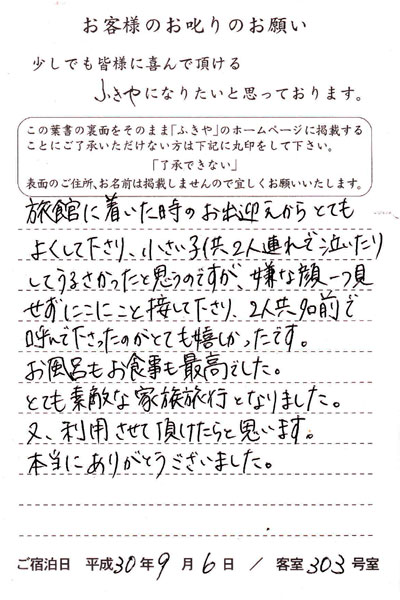 お客様のお叱りのお願い
少しでも皆様に喜んで頂ける
ふきやになりたいと思っております。
この葉書の裏面をそのまま「ふきや」のホームページに掲載する
ことにご了承いただけない方は下記に丸印をして下さい。
「了承できない」
表面のご住所、お名前は掲載しませんので宜しくお願いいたします。
旅館に着いた時のお出迎えからとても
よくして下さり、小さい子供2人連れで泣いたり
してうるさかったと思うのですが、嫌な顔一つ見
せずにこにこと接して下さり、2人共名前で
呼んで下さったのがとても嬉しかったです。
お風呂もお食事も最高でした。
とても素敵な家族旅行となりました。
又、利用させて頂けたらと思います。
本当にありがとうございました。
ご宿泊日 平成30年9月6日 / 客室303号室